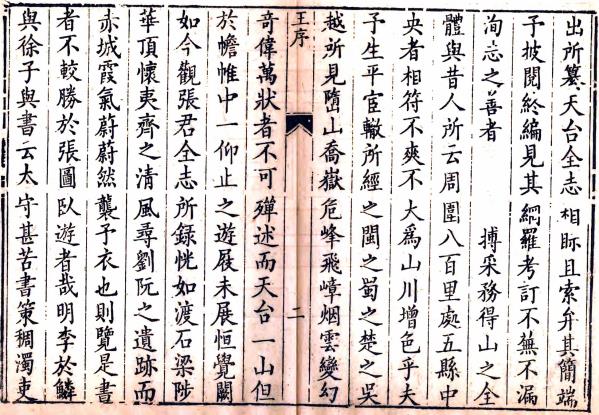 出所纂天台全志相眎且索弁其簡端
予披閱終編見其網羅考訂不蕪不漏
洵志之善者　搏采務得山之全
體與昔人所云周圍八百里處五縣中
央者相符不爽不大爲山川增色乎夫
予生平宦轍所經之閩之蜀之楚之吳
越所見墮山喬嶽危峰飛嶂烟雲變幻
王序　二
奇偉萬狀者不可殫述而天台一山但
於幨帷中一仰止之遊屐未展恒覺闕
如今觀張君全志所録恍如渡石梁陟
華頂懷夷齊之清風尋劉阮之遺跡而
赤城霞氣蔚蔚然襲予衣也則覽是書
者不較勝於張圖臥遊者哉明李於鱗
與徐子與書云太守甚苦書策稠濁吏